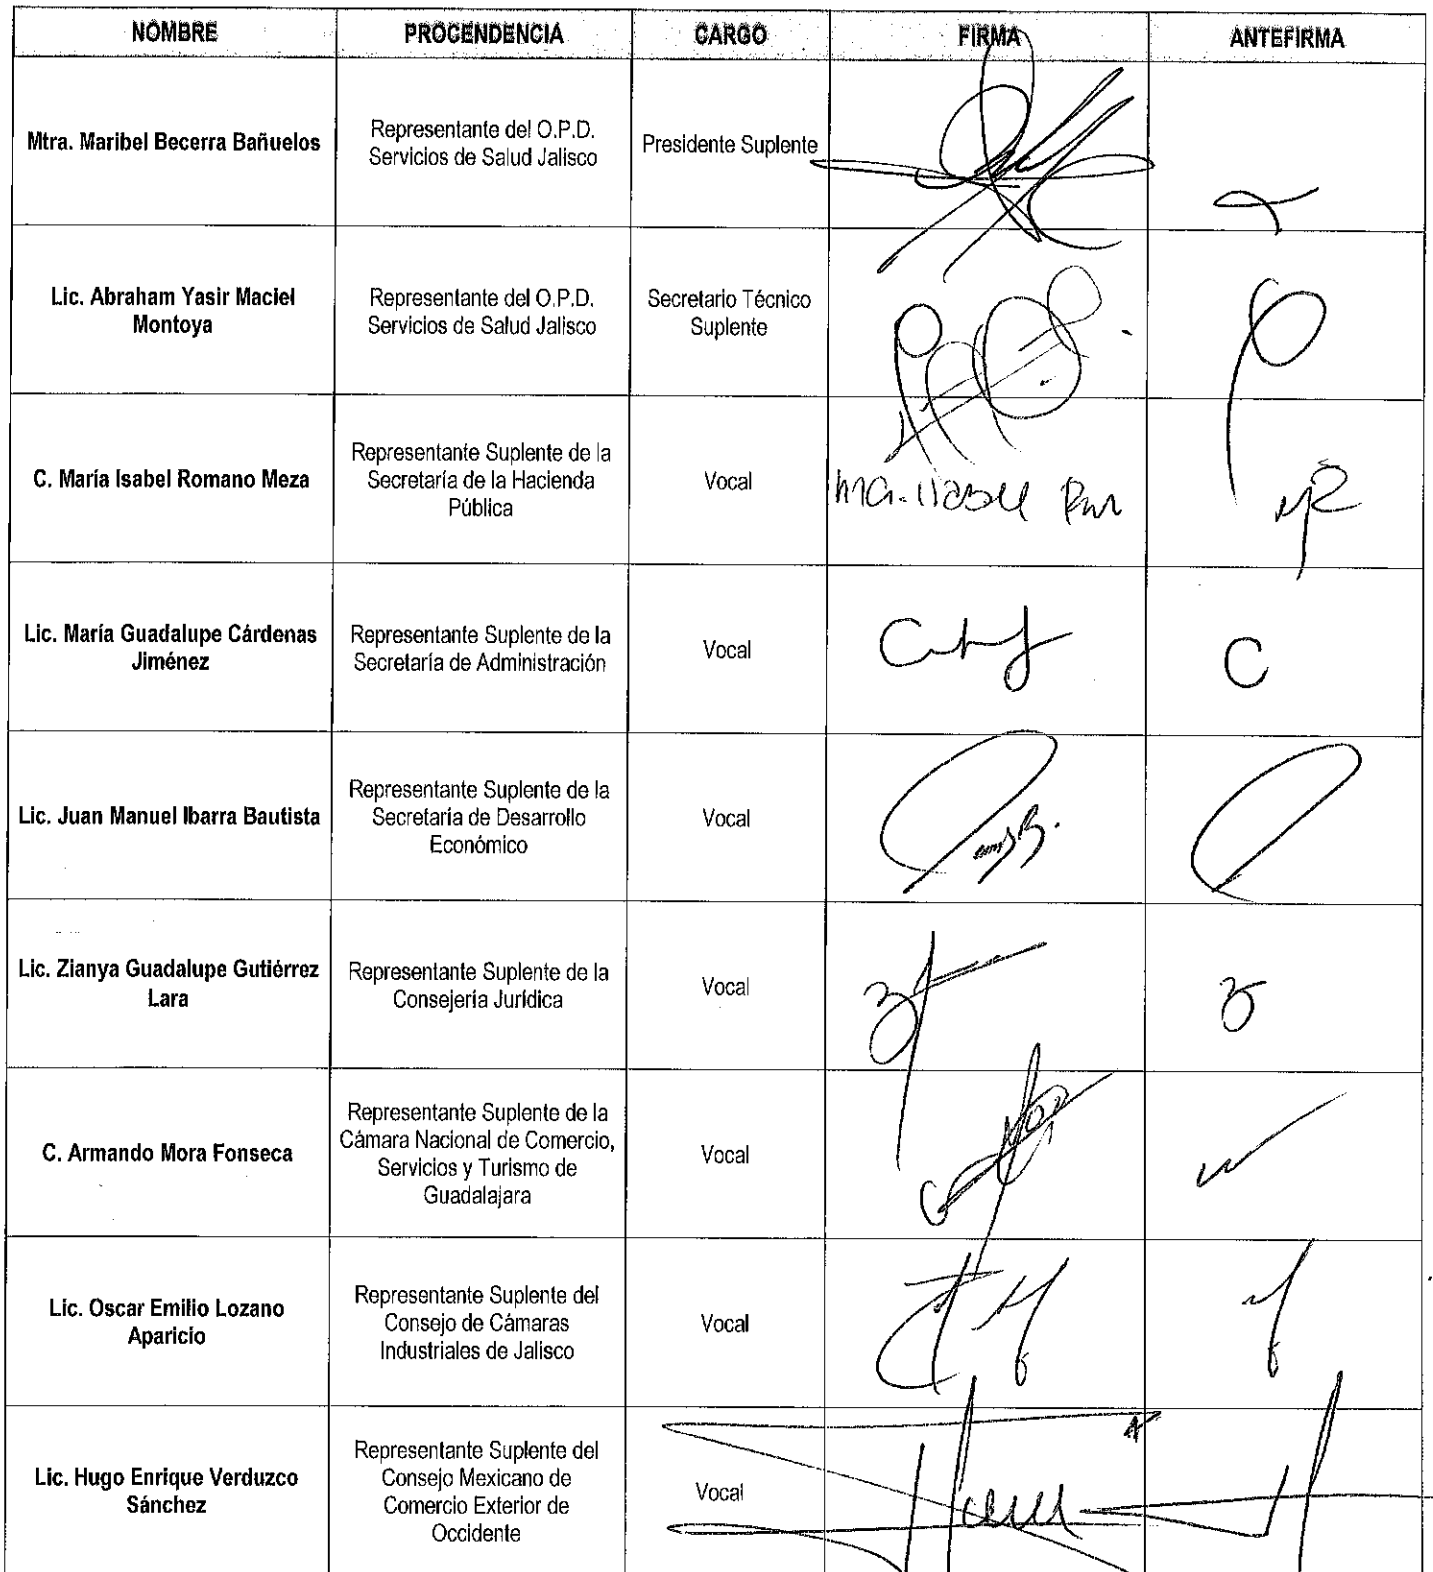 NOMBRE PROCENDENCIA CARGO FIRMA ANTEFIRMA
Mtra. Maribel Becerra Bañuelos
Representante del O.P.D.
Servicios de Salud Jalisco
Presidente Suplente
Lic. Abraham Yasir Maciel
Montoya
Representante del O.P.D.
Servicios de Salud Jalisco
Secretario Técnico
Suplente
C. María Isabel Romano Meza
Representante Suplente de la
Secretaría de la Hacienda
Pública
Vocal
Lic. María Guadalupe Cárdenas
Jiménez
Representante Suplente de la
Secretaría de Administración
Vocal
C
Lic. Juan Manuel Ibarra Bautista
Representante Suplente de la
Secretaría de Desarrollo
Económico
Vocal
Lic. Zianya Guadalupe Gutiérrez
Lara
Representante Suplente de la
Consejería Jurídica
Vocal
C. Armando Mora Fonseca
Representante Suplente de la
Cámara Nacional de Comercio,
Servicios y Turismo de
Guadalajara
Vocal
Lic. Oscar Emilio Lozano
Aparicio
Representante Suplente del
Consejo de Cámaras
Industriales de Jalisco
Vocal
Lic. Hugo Enrique Verduzco
Sánchez
Representante Suplente del
Consejo Mexicano de
Comercio Exterior de
Occidente
Vocal